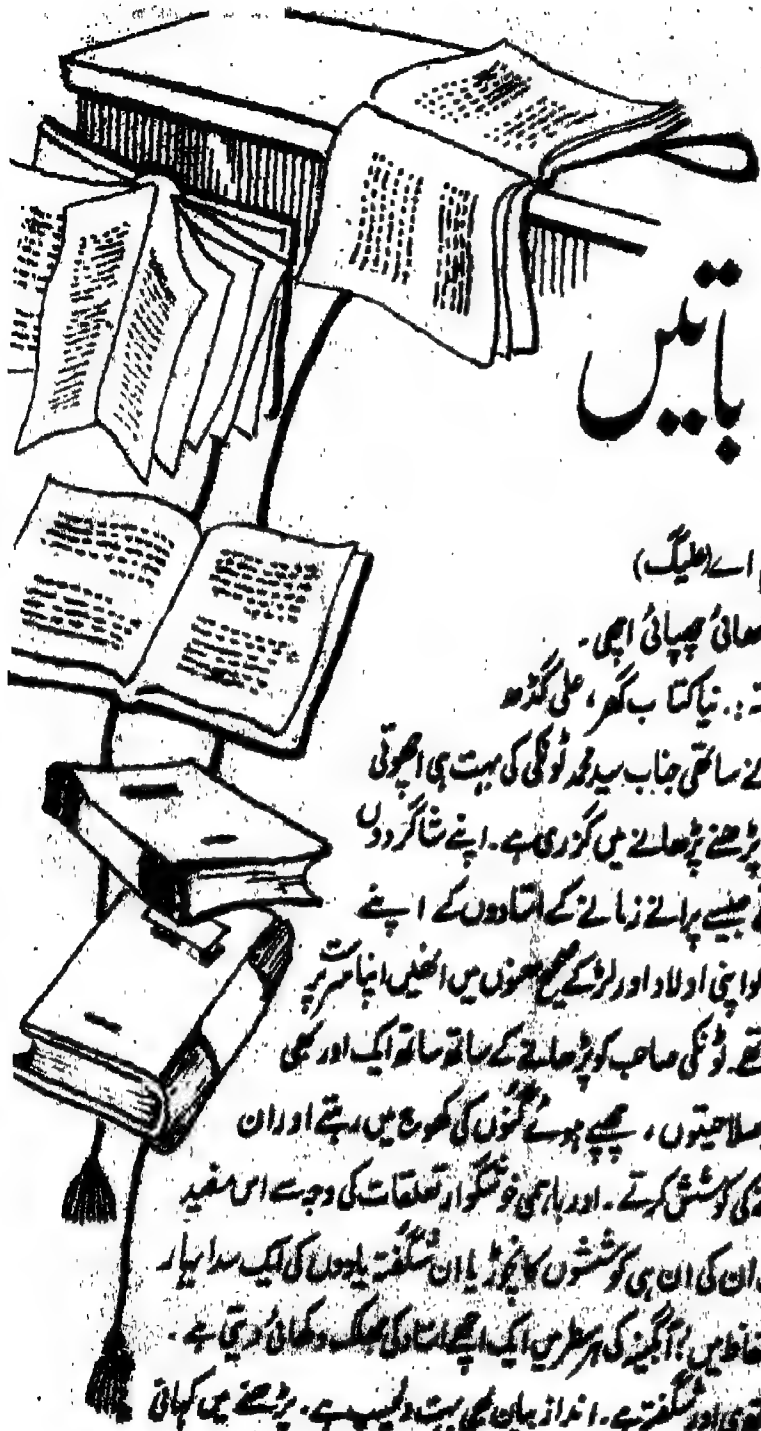 باتیں
اے (علیگ)
چھپائی اچھی۔
نیا کتاب گھر، علی گڑھ
ساتھی جناب سید محمد ٹونکی کی بہت ہی اچھوتی
پڑھنے پڑھانے میں گزری ہے۔ اپنے شاگردوں
جیسے پرانے زمانے کے استادوں کے اپنے
اپنی اولاد اور لڑکے صحیح معنوں میں انھیں اپنا سرپرست
ٹونکی صاحب کو پڑھانے کے ساتھ ساتھ ایک اور بھی
صلاحیتوں، چھپے ہوئے گنوں کی کھوج میں رہتے اور ان
کی کوشش کرتے۔ اور باہمی خوشگوار تعلقات کی وجہ سے اس مفید
ان کی ان ہی کوششوں کا نچوڑ یا ان شگفتہ یادوں کی ایک سدا بہار
میں! آبگینے کی ہر سطر میں ایک اچھے استاد کی جھلک دکھائی دیتی ہے۔
اور شگفتہ ہے۔ انداز بیان بھی بہت دلچسپ ہے۔ پڑھنے میں کہانی